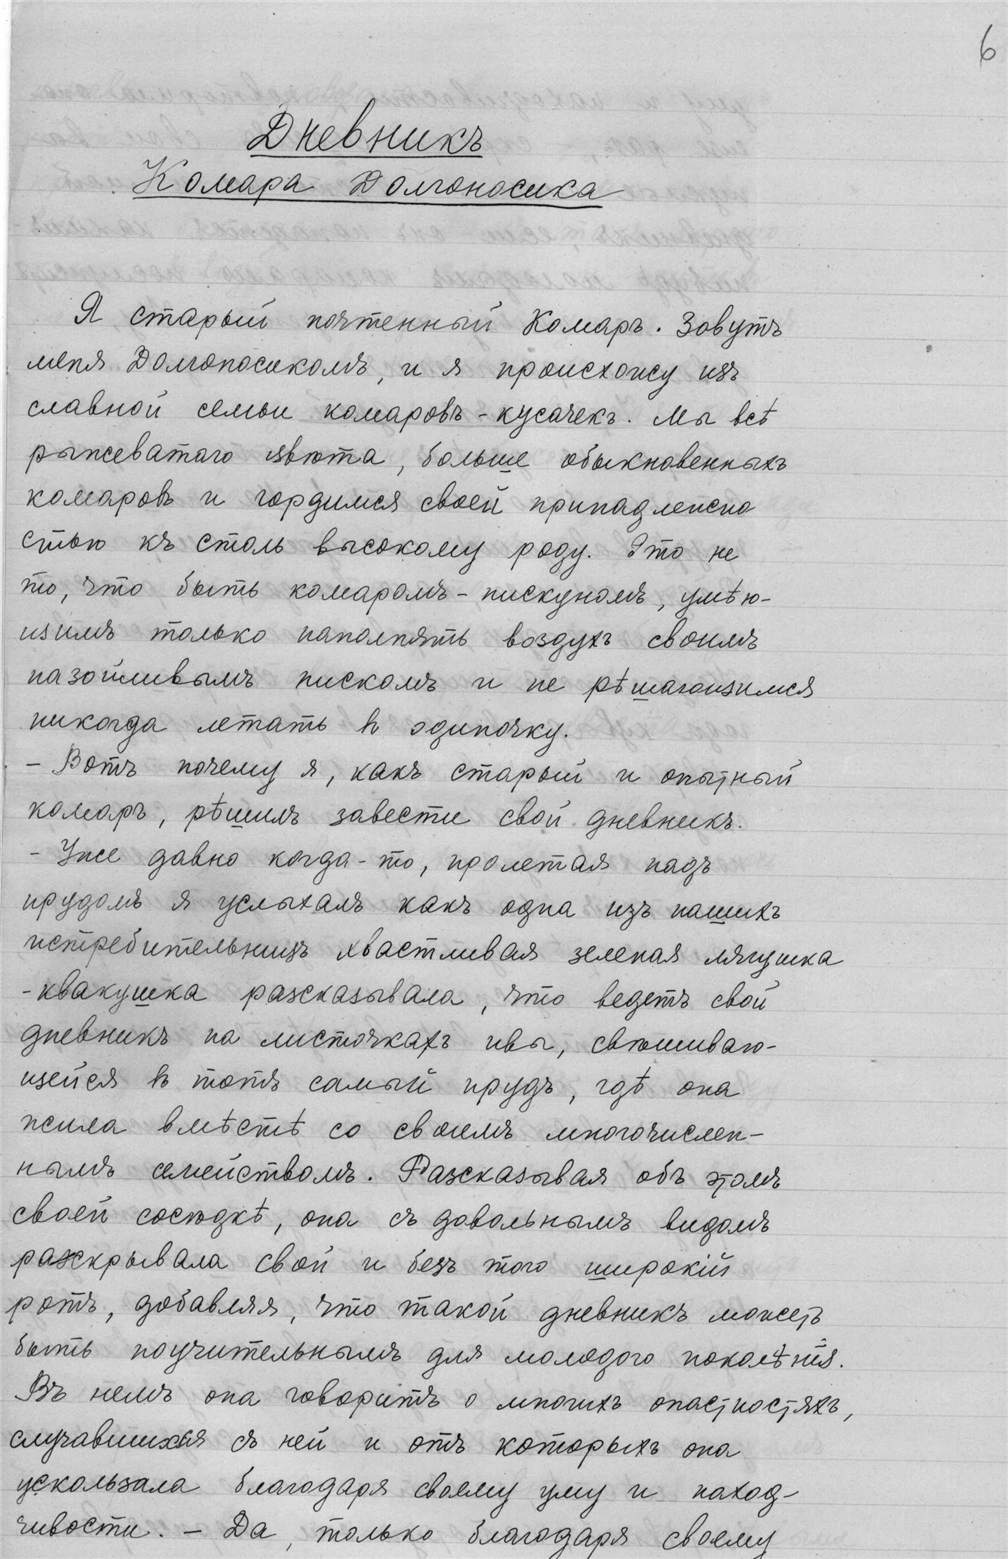 6
Дневникъ
Комара Долгоносика
Я старый почтенный Комаръ. Зовутъ
меня Долгоносикомъ, и я происхожу изъ
славной семьи комаровъ-кусачекъ. Мы всѣ
рыжеватаго цвѣта, больше обыкновенныхъ
комаровъ и гордимся своей принадлежно
стью къ столь высокому роду. Это не
то, что быть комаромъ-пискуномъ, умѣю-
щимъ только наполнять воздухъ своимъ
назойливымъ пискомъ и не рѣшающимся
никогда летать в одиночку.
- Вотъ почему я, какъ старый и опытный
комаръ, рѣшилъ завести свой дневникъ.
- Уже давно когда-то, пролетая надъ
прудомъ я услыхалъ какъ одна изъ нашихъ
истребительницъ хвастливая зеленая лягушка
-квакушка разсказывала, что ведетъ свой
дневникъ на листочкахъ ивы, свѣшиваю-
щейся в тотъ самый прудъ, гдѣ она
жила вмѣстѣ со своимъ многочислен-
нымъ семействомъ. Разсказывая объ этомъ
своей сосѣдкѣ, она съ довольнымъ видомъ
раскрывала свой и безъ того широкій
ротъ, добавляя, что такой дневникъ можетъ
быть поучительнымъ для молодого поколѣнія.
Въ немъ она говоритъ о многихъ опастностяхъ,
случавшихся съ ней и отъ которыхъ она
ускользала благодаря своему уму и наход-
чивости. - Да, только благодаря своему